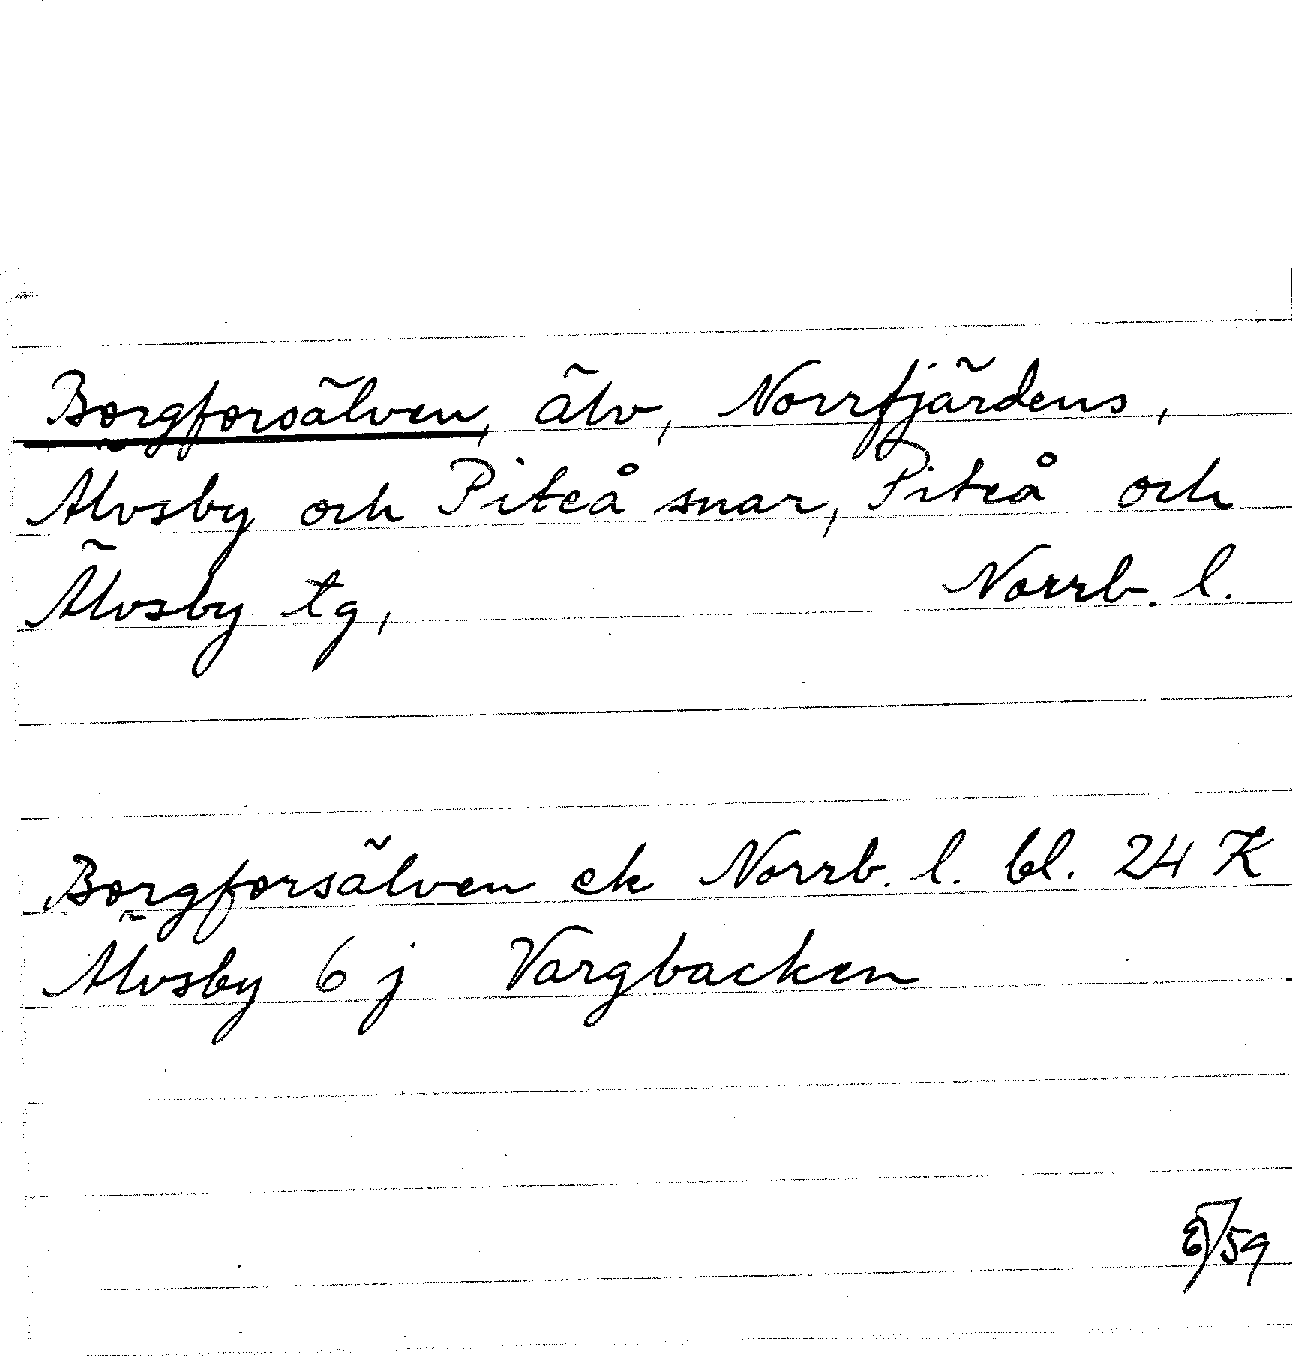 Borgforsälven, älv, Norrfjärdens,
Älvsby och Piteå snar, Piteå och
Älvsby tg, Norrb. l.
Borgforsälven ek Norrb. l. bl. 24 K
Älvsby 6 j Vargbacken